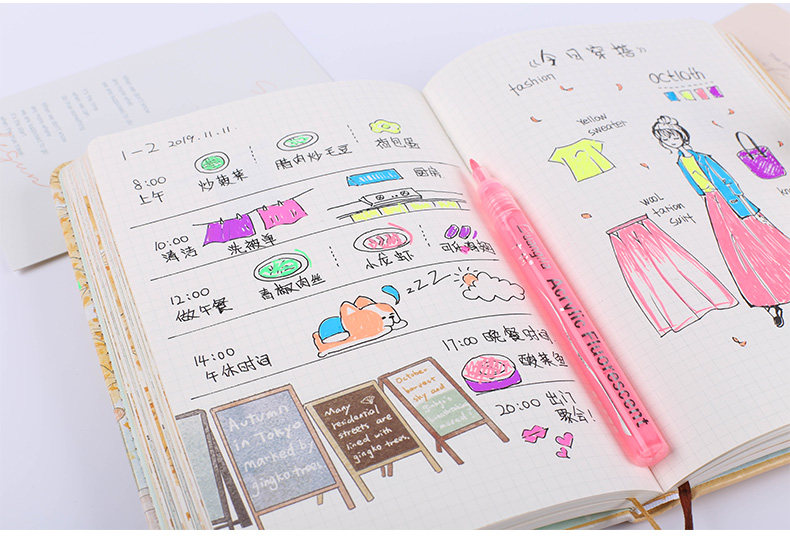 1-2 2019.11.11.
8:00
上午
炒菠菜
腊肉炒毛豆
荷包蛋
10:00
清洁
洗被单
厨房
12:00
做午餐
青椒肉丝
小龙虾
可乐鸡翅
ZZZ
14:00
午休时间
17:00 晚餐时间
酸菜鱼
20:00 出门
聚会!
Autumn
in Tokyo
marked
gingko trees.
Many
residential
streets are
lined with
gingko trees.
October
harvest
sky and
《今日穿搭》
fashion
OCT10th
Yellow
sweater
wool
tartan
suit
Acrylic Fluorescent